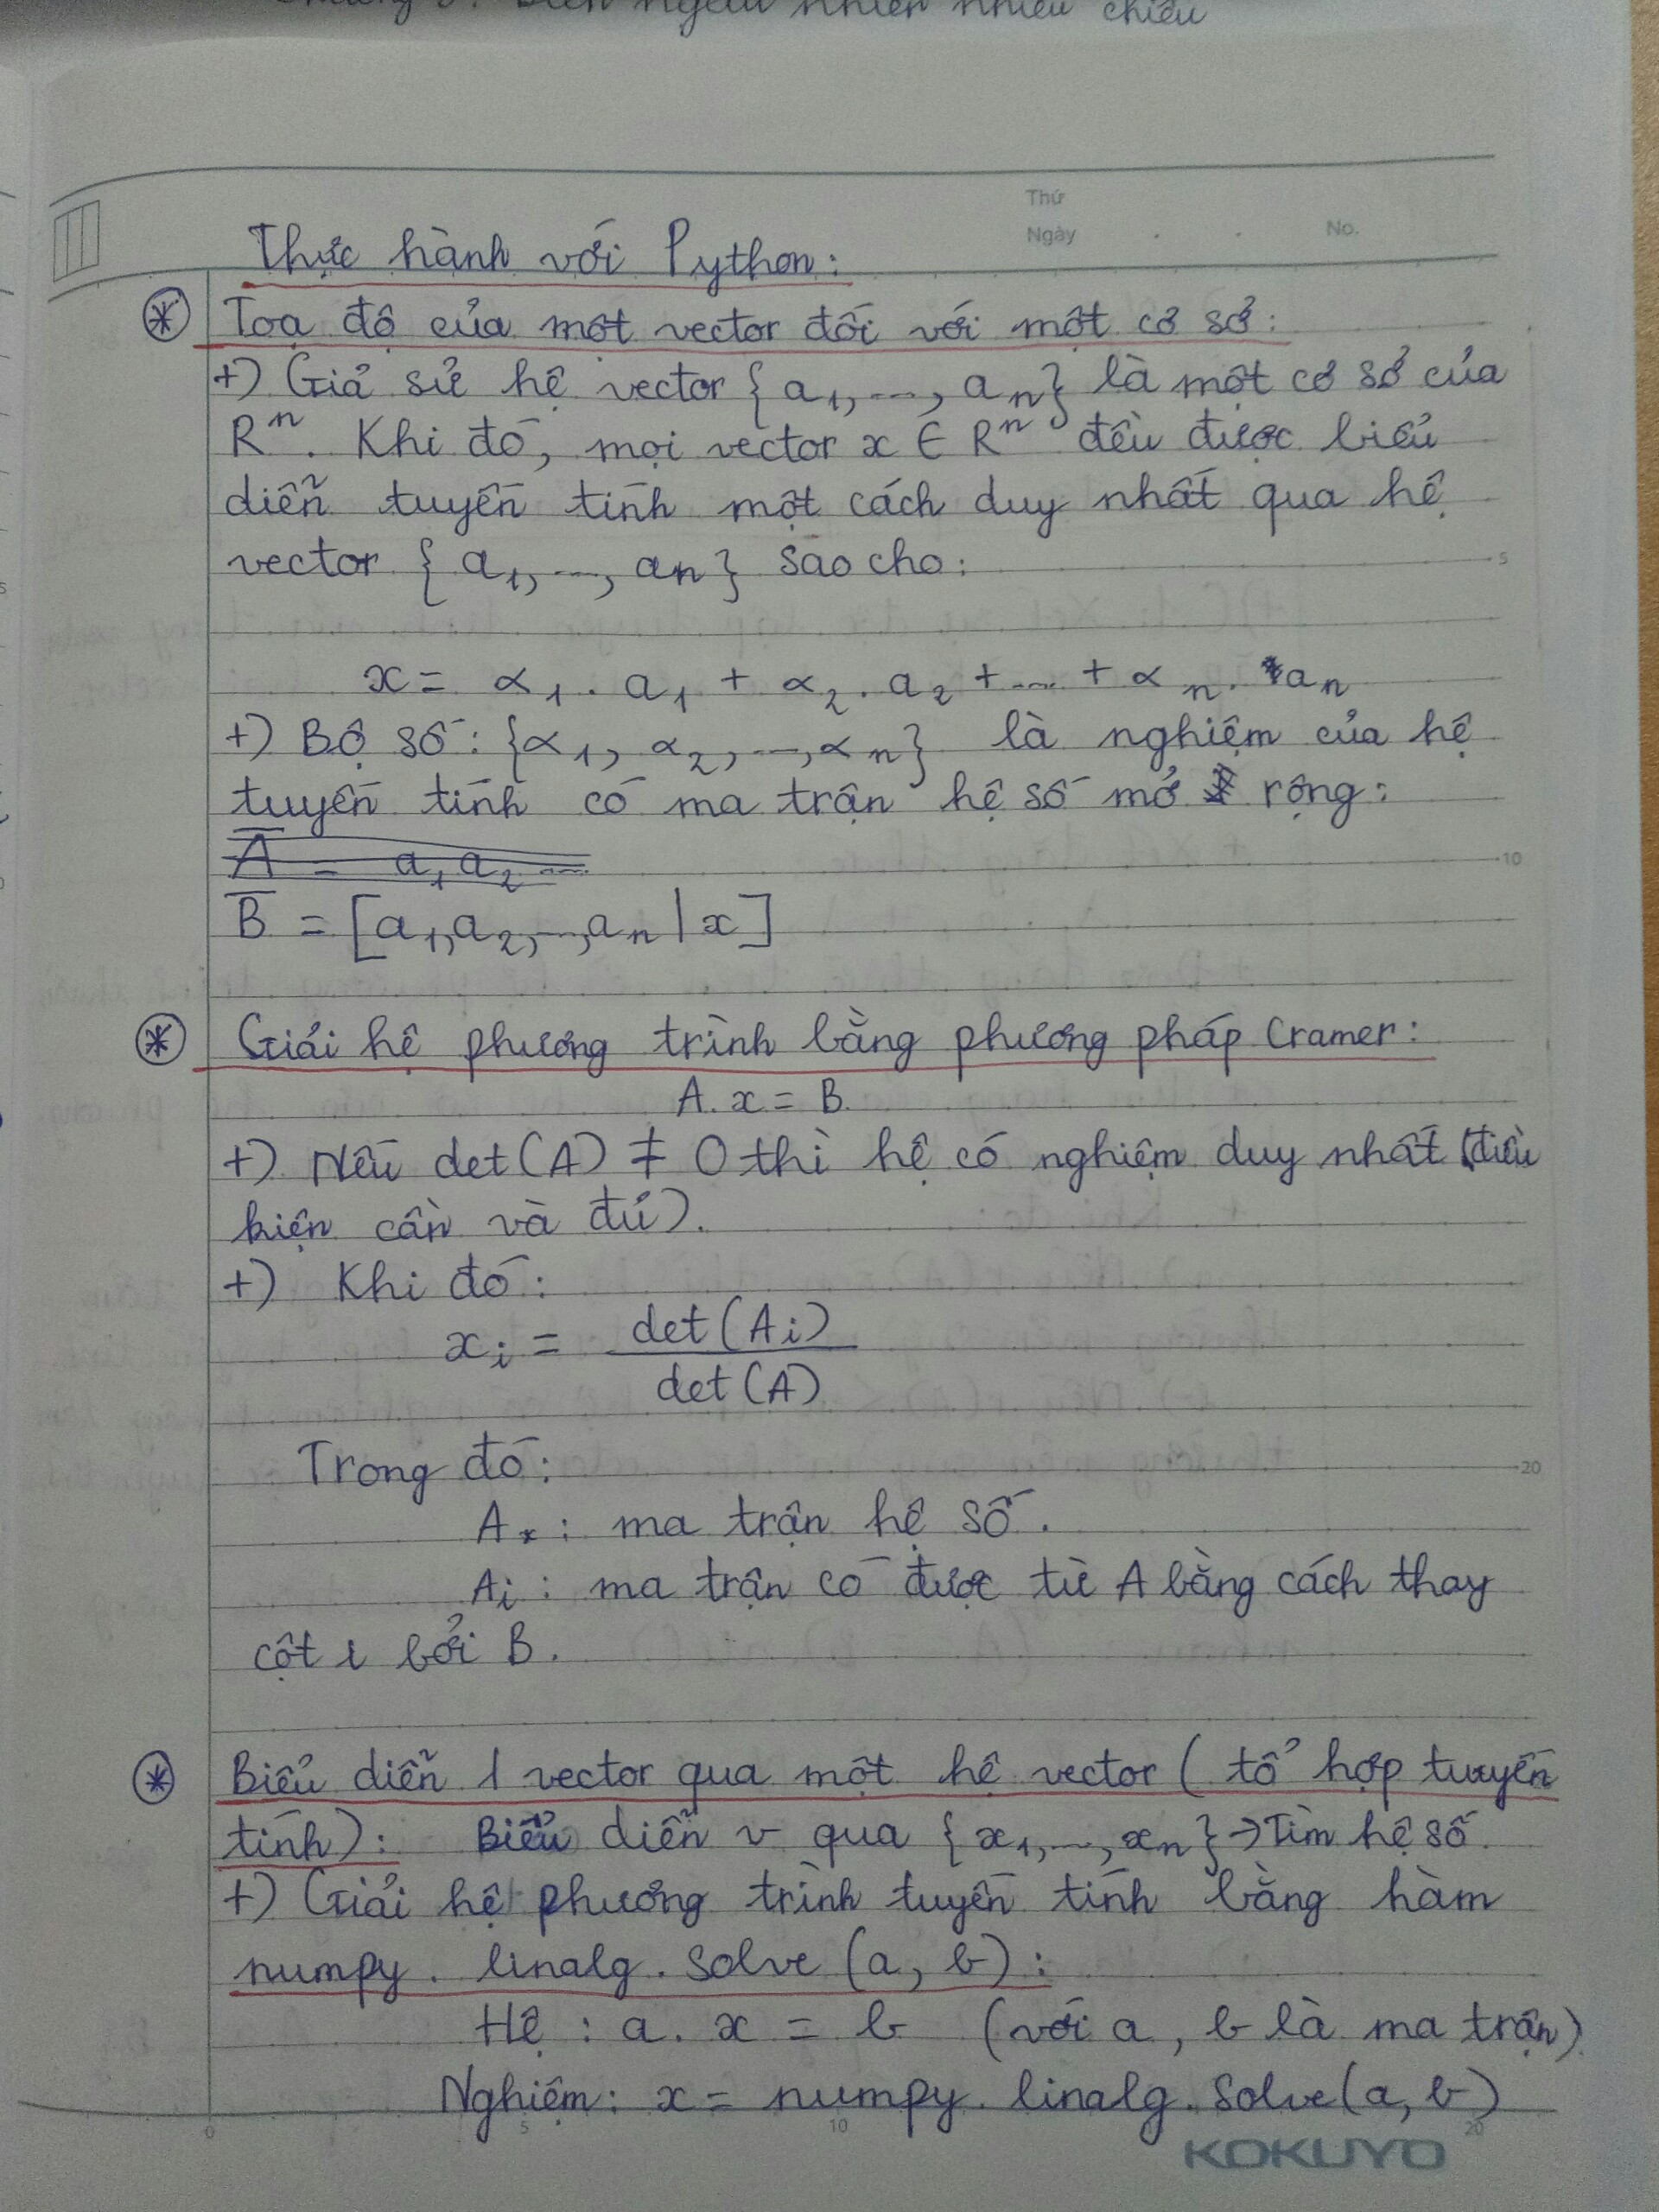 Chương 3: Biến ngẫu nhiên nhiều chiều
Thứ
Ngày . . No.
Thực hành với Python:
* Toạ độ của một vector đối với một cơ sở:
+) Giả sử hệ vector {a₁, ..., aₙ} là một cơ sở của
Rⁿ. Khi đó, mọi vector x ∈ Rⁿ đều được biểu
diễn tuyến tính một cách duy nhất qua hệ
vector {a₁, ..., aₙ} sao cho:
5
x = α₁ . a₁ + α₂ . a₂ + ... + αₙ . aₙ
+) Bộ số: {α₁, α₂, ..., αₙ} là nghiệm của hệ
tuyến tính có ma trận hệ số mở rộng:
A̅ = a₁ a₂ ...
10
B̅ = [a₁, a₂, ..., aₙ | x]
* Giải hệ phương trình bằng phương pháp Cramer:
A. x = B.
+) Nếu det(A) ≠ 0 thì hệ có nghiệm duy nhất (điều
kiện cần và đủ).
+) Khi đó:
xᵢ = det(Aᵢ)
det(A)
Trong đó:
20
A : ma trận hệ số.
Aᵢ : ma trận có được từ A bằng cách thay
cột i bởi B.
* Biểu diễn 1 vector qua một hệ vector (tổ hợp tuyến
tính): Biểu diễn v qua {x₁, ..., xₙ} → Tìm hệ số.
+) Giải hệ phương trình tuyến tính bằng hàm
numpy. linalg. solve (a, b):
Hệ : a. x = b (với a, b là ma trận).
Nghiệm: x = numpy. linalg. solve(a, b)
0 5 10 20
KOKUYO